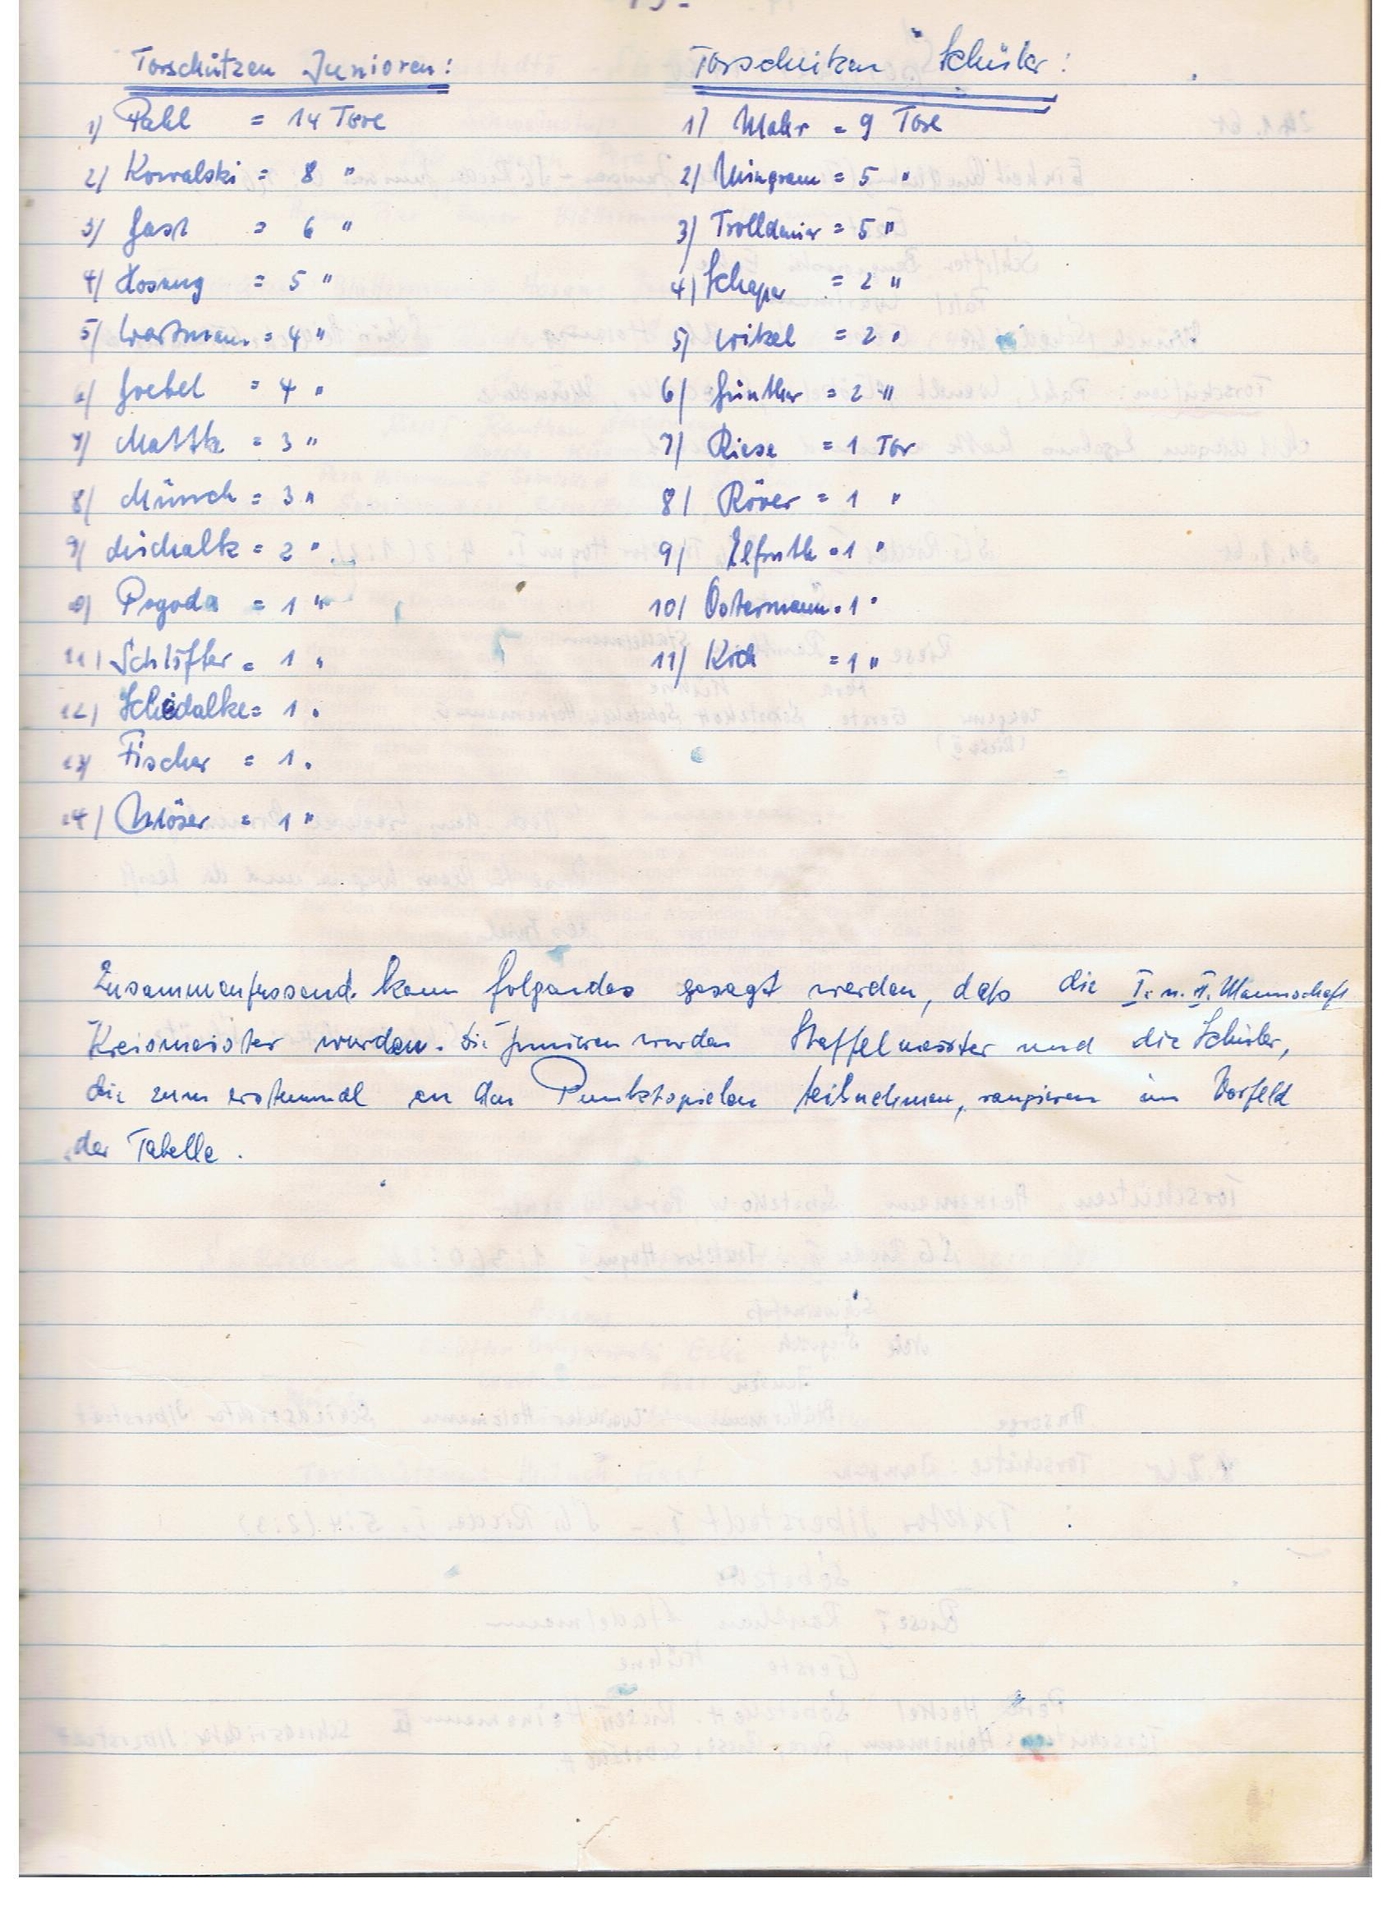 Torschützen Junioren:
1) Pahl = 14 Tore
2) Kowalski = 8 "
3) Gast = 6 "
4) Hosung = 5 "
5) Wartmann = 4 "
6) Goebel = 4 "
7) Mattke = 3 "
8) Münch = 3 "
9) = 2 "
10) Pogoda = 1 "
11) Schlöffer = 1 "
12) Schedalke = 1 "
13) Fischer = 1 "
14) Möser = 1 "
Torschützen Schüler:
1) Mohr = 9 Tore
2) Mingram = 5 "
3) Trolldenier = 5 "
4) Schaper = 2 "
5) Wikel = 2 "
6) Günther = 2 "
7) Riese = 1 Tor
8) Röver = 1 "
9) = 1 "
10) Ostermann = 1 "
11) Koch = 1 "
Zusammenfassend kann folgendes gesagt werden, daß die I. u. II. Mannschaft
Kreismeister wurden. Die Junioren wurden Staffelmeister und die Schüler,
die zum erstenmal an den Punktspielen teilnehmen, rangieren im Vorfeld
der Tabelle.